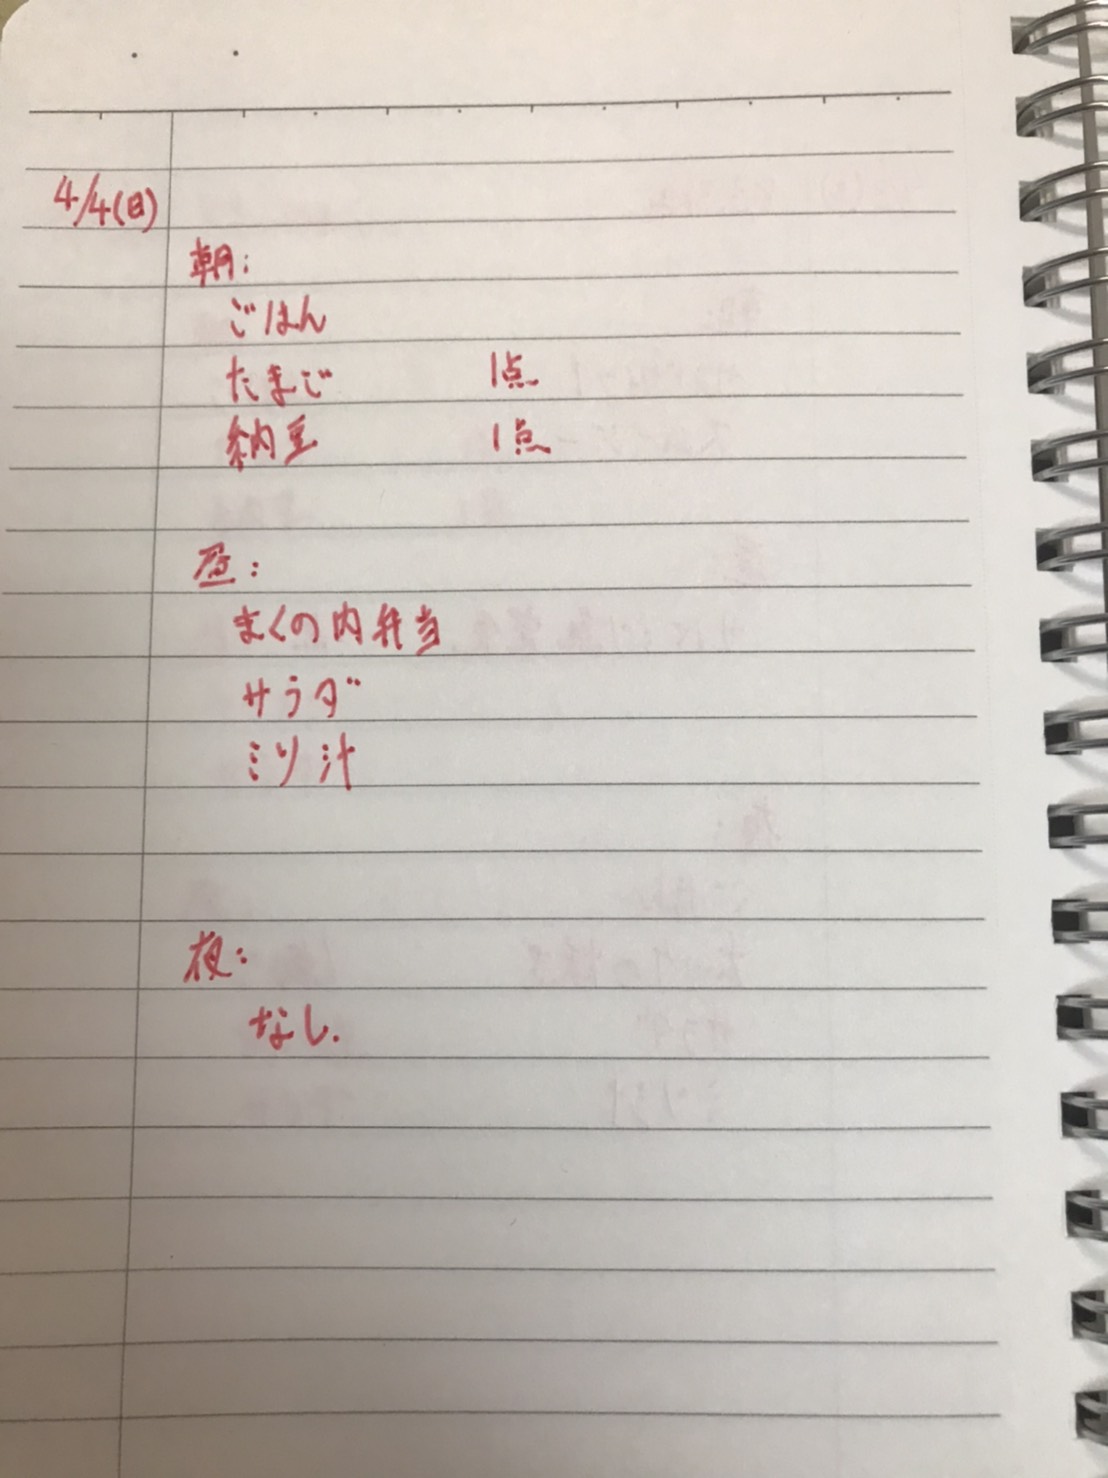 4/4(日)
朝:
ごはん
たまご 1点
納豆 1点
昼:
まくの内弁当
サラダ
ミソ汁
夜:
なし.